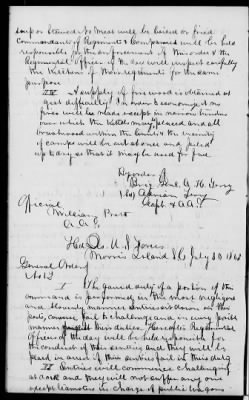 soup or stewed. No meat will be boiled or fried
Commandants of Regiments & Companies will be held
responsible for the enforcement of this order & the
Regimental Officer of the day will inspect carefully
the Kitchens of their regiments for the same
purpose
III A supply of fire wood is obtained at
great difficulty. In order to economize it no
fires will be made except in narrow trenches
over which the kettles may be placed and all
brushwood within the limits & the vicinity
of camps will be cut at once and piled
up to dry so that it may be used for fuel
By order of
Brig Genl. A. H. Terry
Adrian Terry
Capt & A.A.G.
Official
William Prest
A.A.G.
Head Qrs U.S. Forces
Morris Island S.C. July 30 1863
General Orders
No 12
I The guard duty of a portion of the
command is performed in the most negligent
and slovenly manner. Sentries sit down on their
posts, carelessly fail to challenge and in every
manner their duties. Hereafter Regimental
Officers of the day will be held responsible for
the conduct of their sentries and they will be
placed in arrest if their sentries fail in their duty
II Sentries will commence challenging
at dark and they will not suffer any one
except teamsters in charge of public wagons